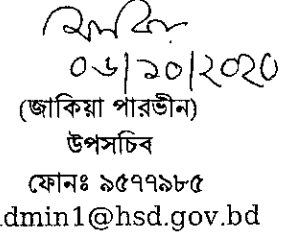 ০৬/১০/২০২০
(জাকিয়া পারভীন)
উপসচিব
ফোনঃ ৯৫৭৭৯৮৫
dmin1@hsd.gov.bd